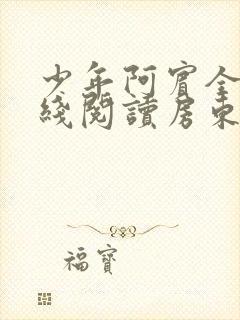 少年阿賓全
綫閱讀房東
福寶